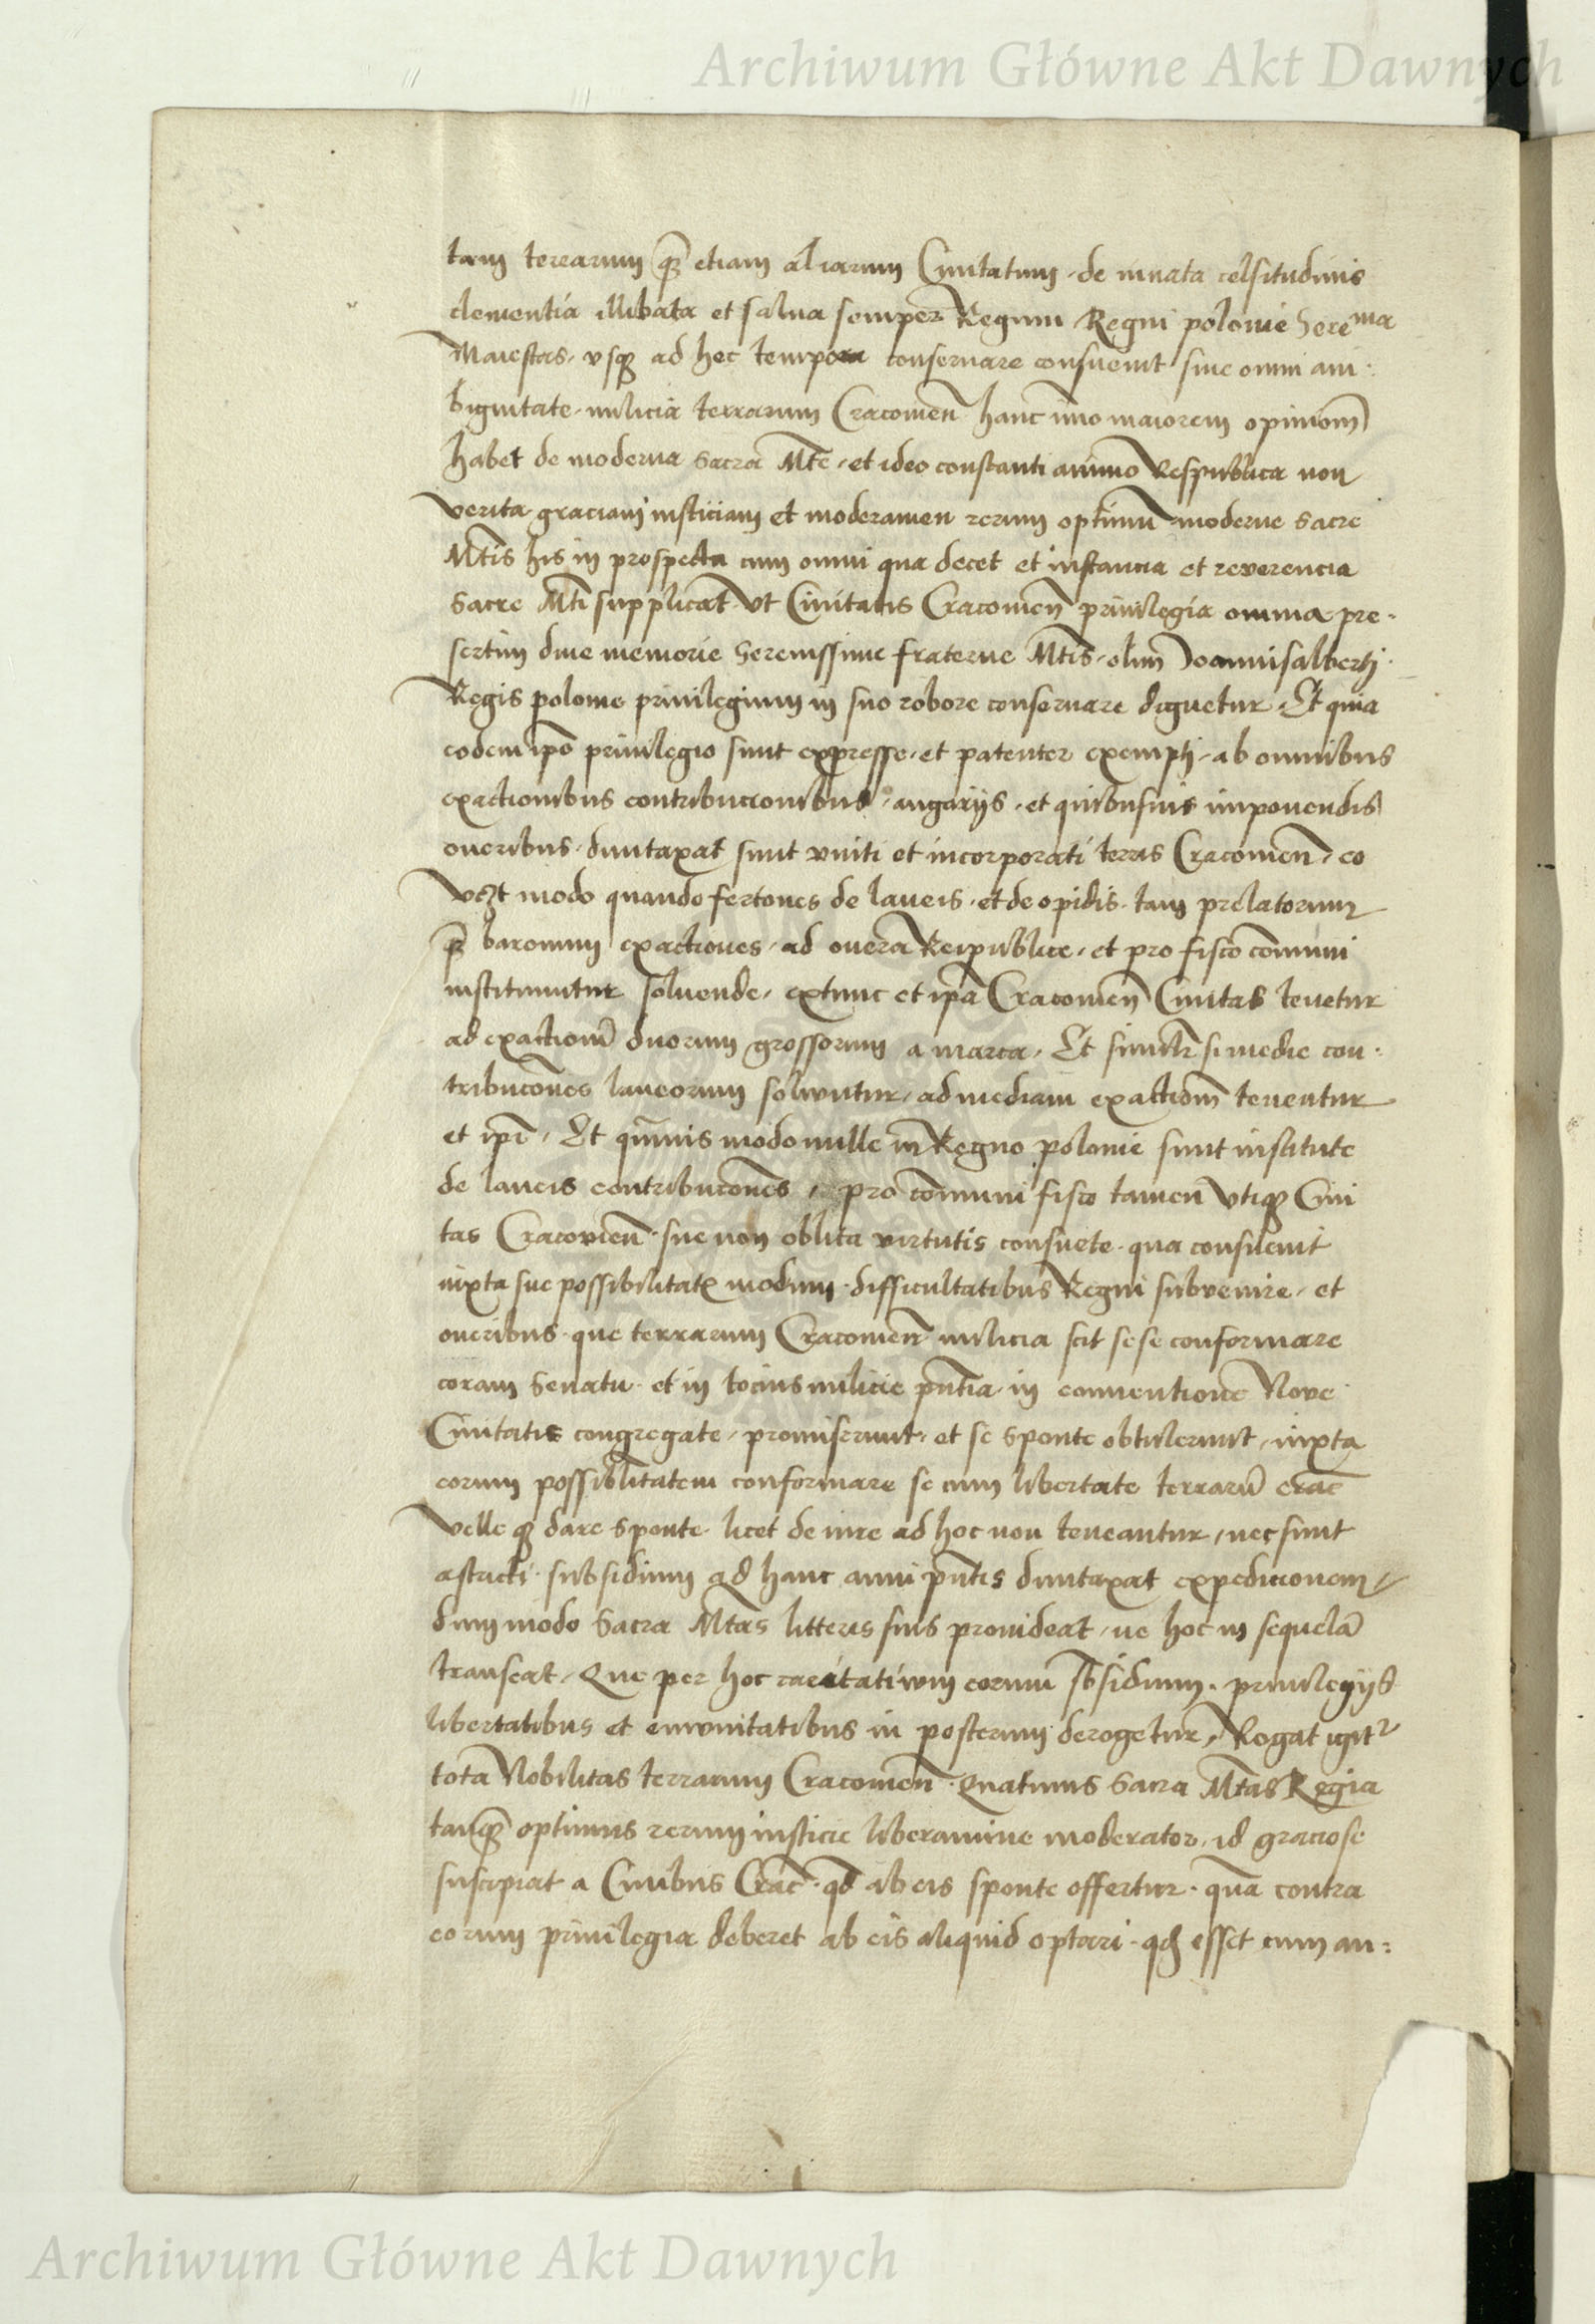 Archiwum Główne Akt Dawnych
tam terrarum q̃ꝫ etiam aliarum Ciuitatum · de innata celsitudinis
clementia illibata et salua semper Regum Regni polonie Sere^ma
Maiestas, vsqꝫ ad hec tempora conseruare consueuit sine omni am-
biguitate · milicia terrarum Cracouien̄ hanc imo maiorem opiniom̄
habet de moderna Sacra Mt̄e, et ideo constanti animo Respublica non
verita graciam iusticiam et moderamen rerum optimū moderne Sacre
Mt̄is his in prospecta cum omni qua decet et instancia et reverencia
Sacre Mt̄i supplicat vt Ciuitatis Cracouien̄ priuilegia omnia pre-
sertim diue memorie Serenissime fraterne Mt̄is, olim Joannisalberti
Regis polonie priuilegium in suo robore conseruare dignetur, Et quia
eodem ip̄o priuilegio sunt expresse, et patenter exempti, ab omnibus
exactionibus contribucionibus, angarijs, et quibusuis imponendis
oneribus · duntaxat sunt vniti et incorporati terris Cracouien̄, eo
vꝫt modo quando fertones de laneis, et de opidis, tam prelatorum
q̃ꝫ baronum exactiones, ad onera Reipublice, et pro fisco com̄uni
instituuntur soluende, extunc et ip̄a Cracouien̄ Ciuitas tenetur
ad exactiom̄ duorum grossorum a marca, Et similr̄ si medie con-
tribuco̅nes laneorum soluuntur, ad mediam exactiom̄ tenentur
et ip̄i, Et quāuis modo nulle in Regno polonie sunt institute
de laneis contribuco̅nes, pro com̄uni fisco tamen vtiqꝫ Ciui
tas Cracouien̄ · sue non oblita virtutis consuete · qua consueuit
iuxta sue possibilitatꝭ modum · difficultatibus Regni subvenire, et
oneribus · que terrarum Cracouien̄ milicia scit sese conformare
coram Senatu · et in tocius milicie pn̄tia · in conuentione Noue
Ciuitatis congregate, promiserunt, et se sponte obtulerunt, iuxta
eorum possiblitatem conformare se cum libertate terrarū crac̄
velle qꝫ dare sponte · licet de iure ad hoc non teneantur, nec sunt
astricti · subsidium ad hanc anni pn̄tis duntaxat expedicionem,
dum modo Sacra Mt̄as litteris suis prouideat, ne hoc in sequelā
transeat, Que per hoc caritatiuum eorum sb̄sidium, priuilegijs
libertatibus et emunitatibus in posterum derogetur, Rogat igit^r
tota Nobilitas terrarum Cracouien̄ · Quatinus Sacra Mt̄as Regia
tanq̃ꝫ optimus rerum iusticie liberamine moderator, id graciose
suscipiat a Ciuibus Crac̄ · qd̄ ab eis sponte offertur · quā contra
eorum priuilegia deberet ab eis aliquid optari · qd̄ esset cum an-
Archiwum Główne Akt Dawnych